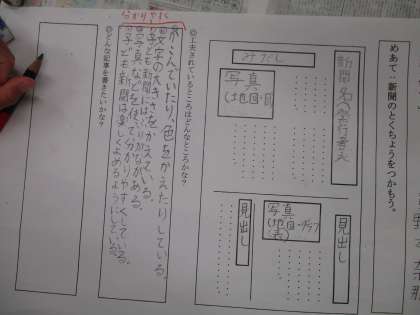 めあて:新聞のとくちょうをつかもう。
新聞名や発行者名
みだし
写真
(地図・図
見出し
写真
(地図・グラフ
(表)
見出し
◎工夫されているところはどんなところかな?
分かりやすく
かこんでいたり、色をかえたりしている。
文字の大きさをかえている。
子ども新聞にはふりがながある。
写真などを使って分かりやすくしている。
子ども新聞は楽しくよめるようにしている。
◎どんな記事を書きたいかな?